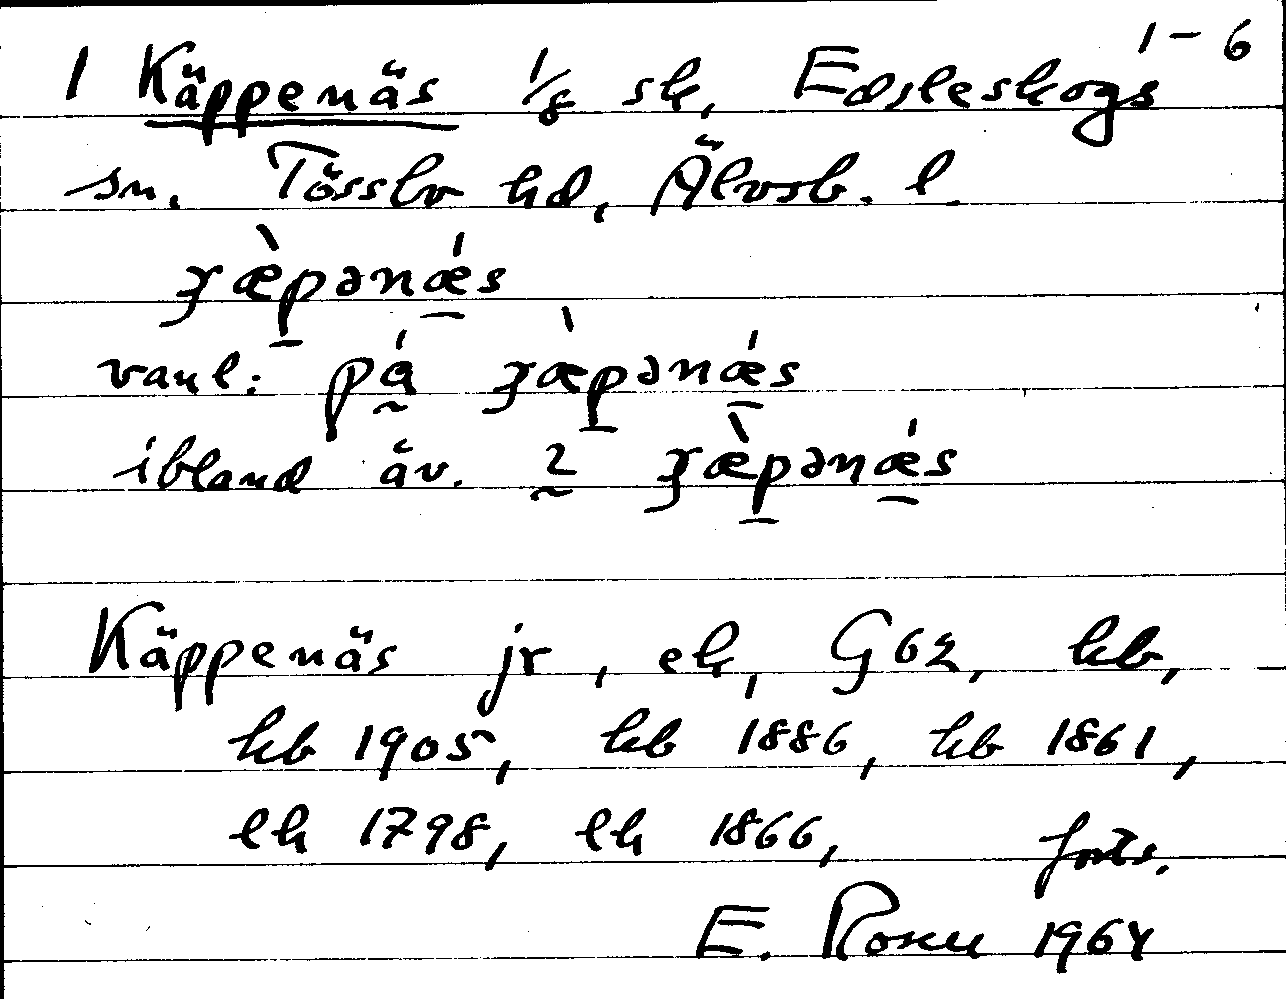 1-6
1 Käppenäs 1/8 sk, Edsleskogs
sn. Tössbo hd, Älvsb. l.
ʒæ̀pənǽs
vanl: pá ʒæ̀pənǽs
ibland äv. 2 ʒæ̀pənǽs
Käppenäs jr, ek, G62, kb,
kb 1905, kb 1886, kb 1861,
lh 1798, lh 1866, forts.
E. 1964